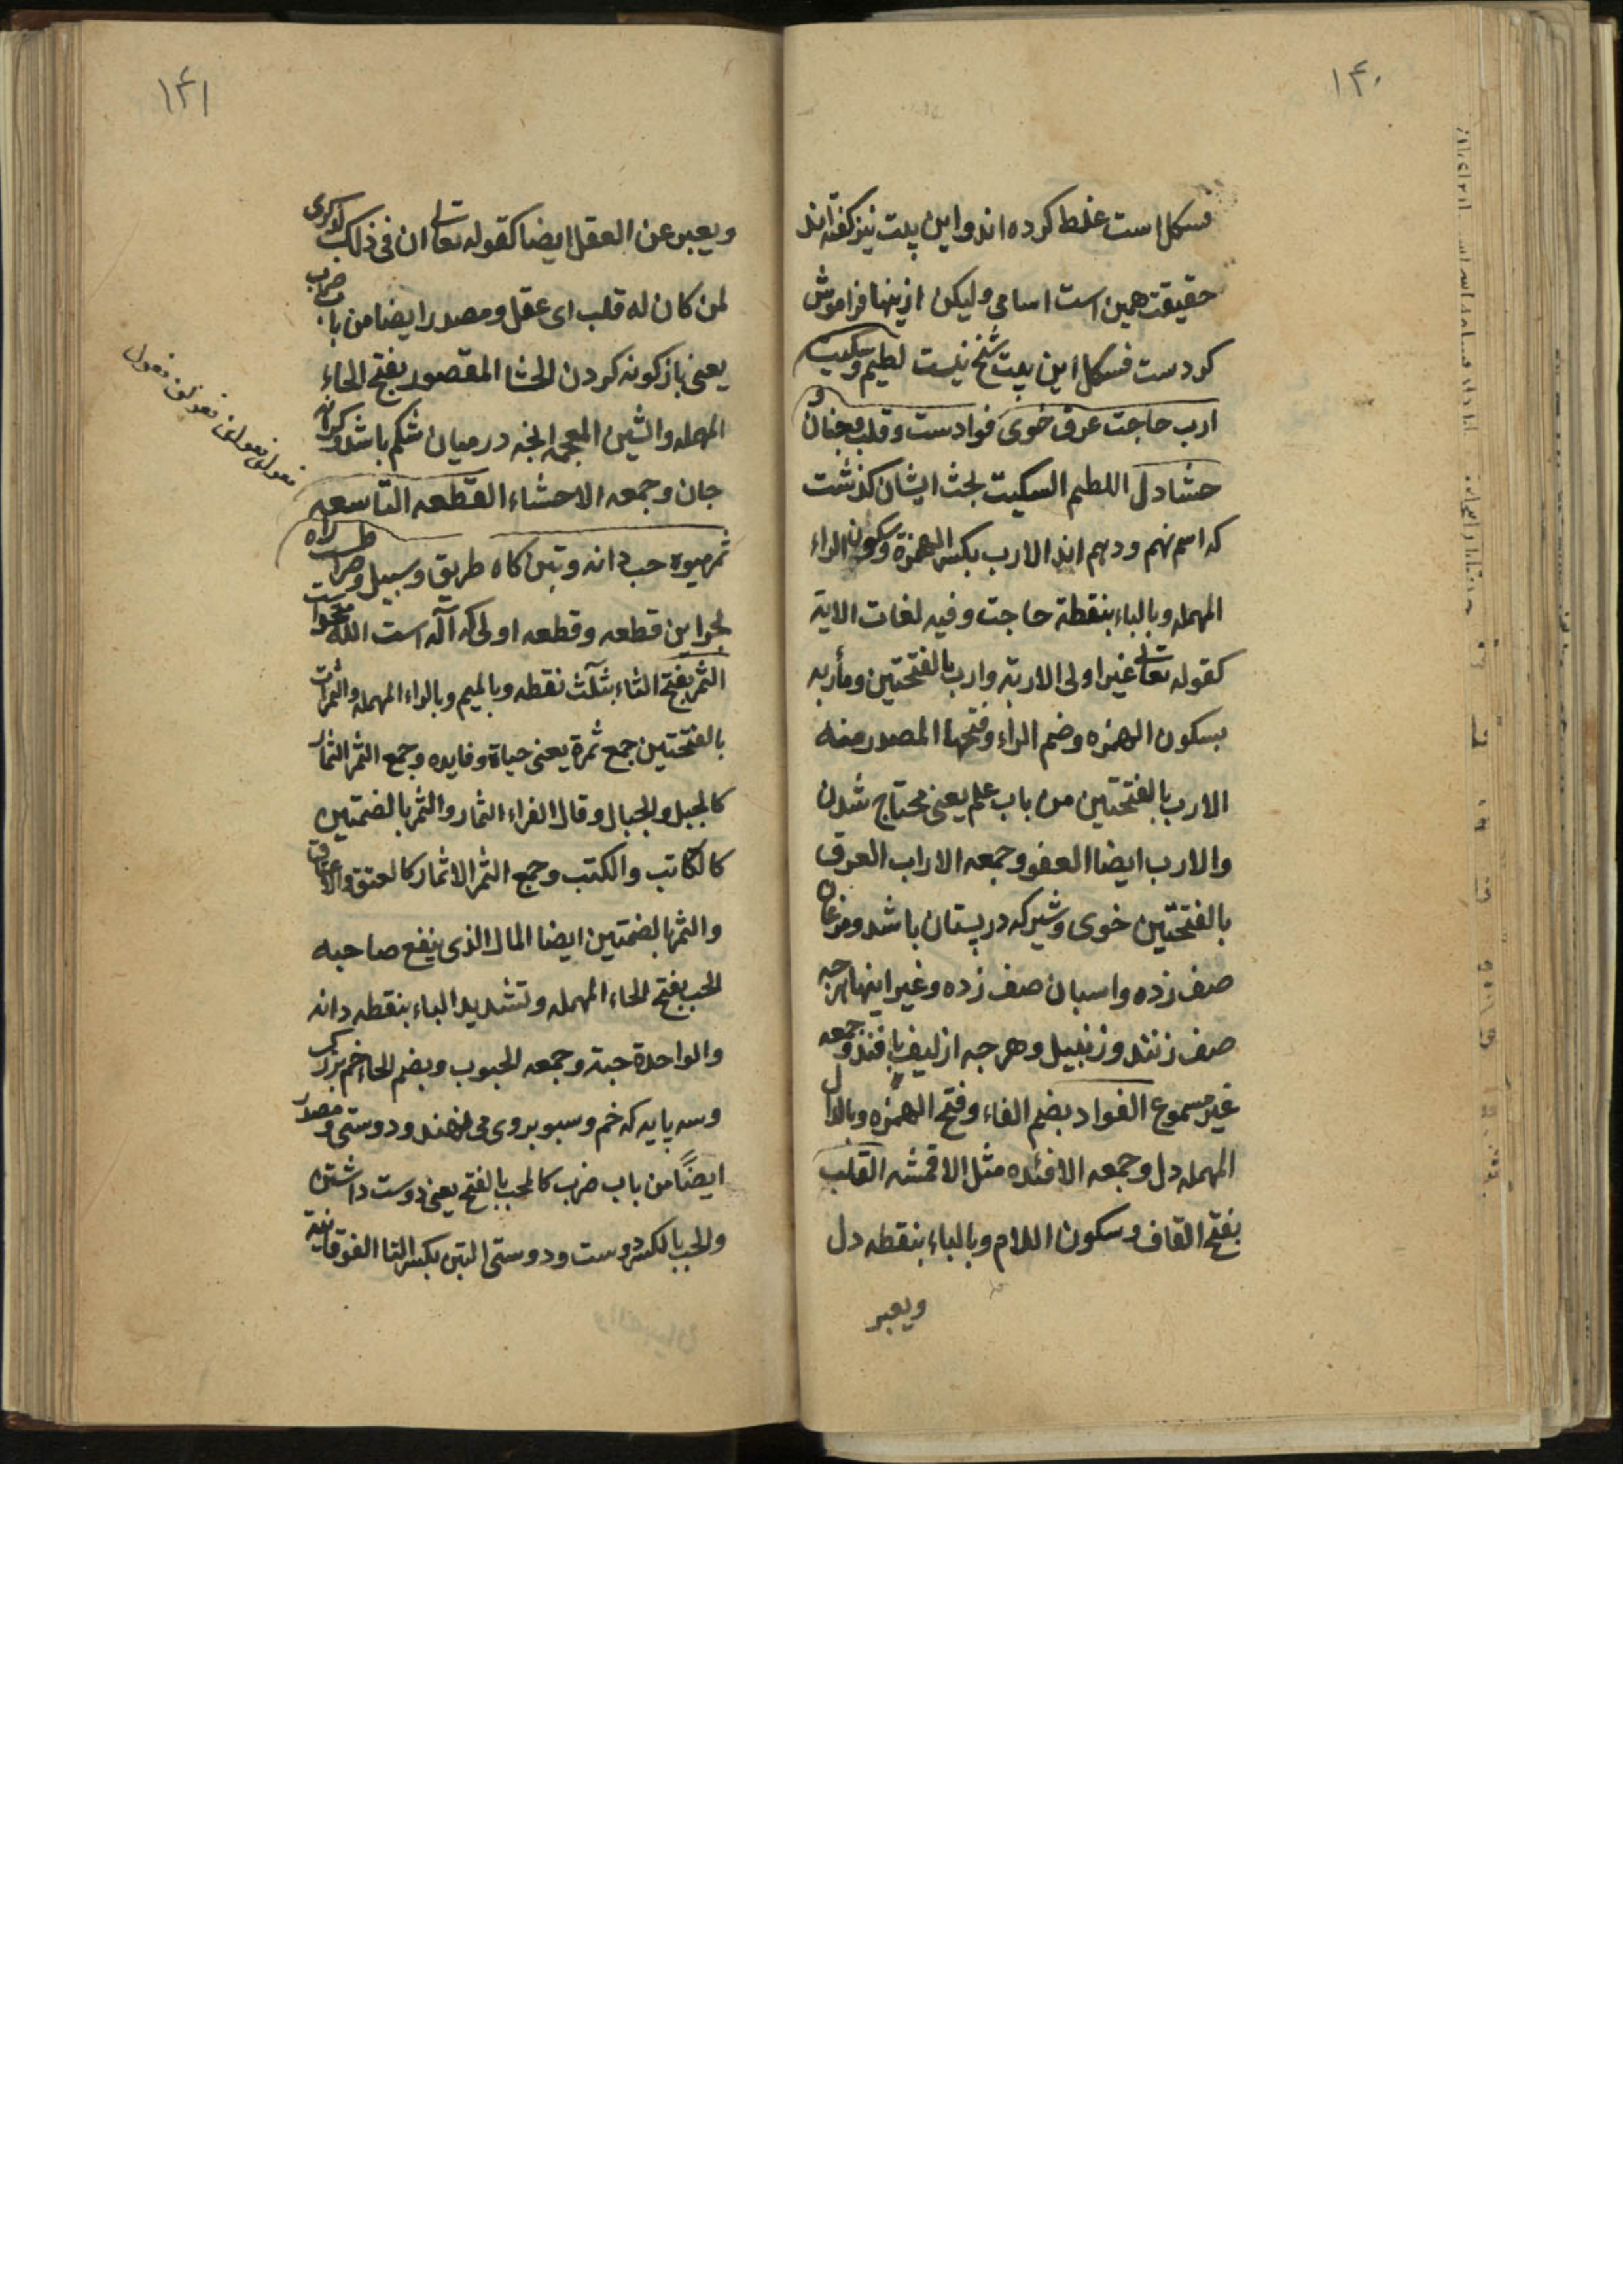 ۱۴۰
فسکل است غلط کرده اند و این بیت نیز گفته اند
حقیقت همین است اسامی ولیکن ازینها فراموش
کردست فسکل این بیت شیخ نیست لطیم و سکیت
ارب حاجت عرق خوی فوادست و قلب و جنان و
حشا دل اللطیم السکیت بحث ایشان کذشت
که اسم نهم و دهم اند الارب بکسر الهمزة وسکون الراء
المهمله وبالباء بنقطة حاجت وفیه لغات الاربة
کقوله تعالی غیر اولی الاربة وارب بالفتحتین ومأربه
بسکون الهمزه وضم الراء وفتحها المصدر منه
الارب بالفتحتین من باب علم یعنی محتاج شدن
والارب ایضا العضو وجمعه الاراب العرق
بالفتحتین خوی وشیر که در پستان باشد ومرغان
صف زده واسبان صف زده وغیر اینها هرچه
صف زنند وزنبیل وهرچه از لیف بافند وجمعه
غیر مسموع الفواد بضم الفاء وفتح الهمزه وبالدال
المهمله دل وجمعه الافئده مثل الاقمشه القلب
بفتح القاف وسکون اللام وبالباء بنقطه دل
ویعبر
۱۴۱
ویعبر عن العقل ایضا کقوله تعالی ان فی ذلک لذکری
لمن کان له قلب ای عقل ومصدر ایضا من باب ضرب
یعنی باز کونه کردن الحشا المقصور بفتح الحاء
المهمله والشین المعجمه انچه در میان شکم باشد وکرانه
جان وجمعه الاحشاء القطعه التاسعه
ثمر میوه حب دانه وتبن کاه طریق وسبیل وصراط راه
بحر این قطعه وقطعه اولی که آله است الله
الثمر بفتح الثاء بثلث نقطه وبالمیم وبالراء المهمله والثمرات
بالفتحتین جمع ثمرة یعنی حیاة وفایده وجمع الثمر الثمار
کالجبل والجبال وقال الفراء الثمار والثمر بالضمتین
کالکاتب والکتب وجمع الثمر الاثمار کالعنق والاعناق
والثمر بالضمتین ایضا المال الذی ینفع صاحبه
الحب بفتح الحاء المهمله وتشدید الباء بنقطه دانه
والواحدة حبة وجمعه الحبوب وبضم الحاء خم بزرک
وسه پایه که خم وسبو بروی می نهند ودوستی ومصدر
ایضًا من باب ضرب کالحب بالفتح یعنی دوست داشتن
والحب بالکسر دوست ودوستی التبن بکسر التا الفوقانیة
فعولن فعولن فعولن فعول